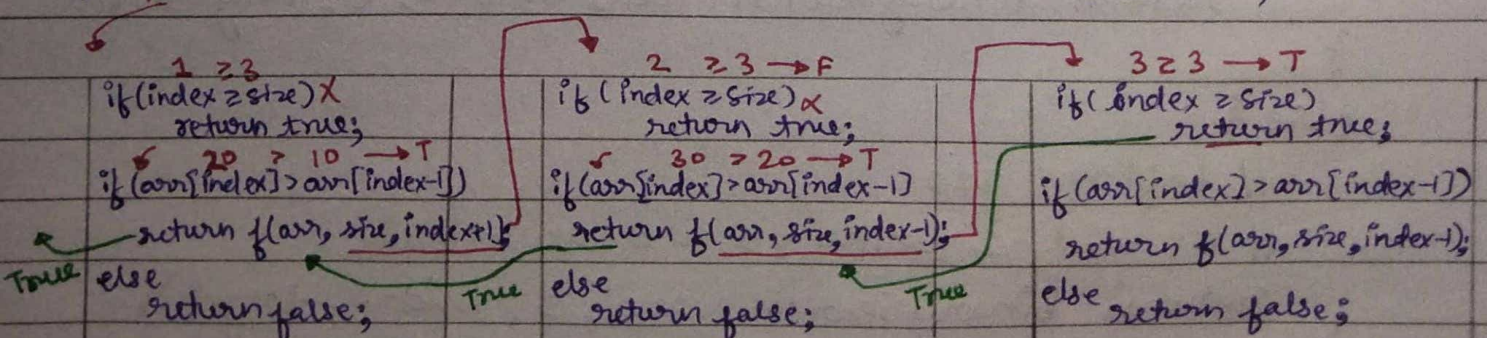 1 ≥ 3
if(index ≥ size) X
return true;
✓ 20 > 10 → T
if(arr[index] > arr[index-1])
return f(arr, size, index+1);
True
else
return false;
2 ≥ 3 → F
if(index ≥ size) x
return true;
✓ 30 > 20 → T
if(arr[index] > arr[index-1]
return f(arr, size, index-1);
True
else
return false;
3 ≥ 3 → T
if(index ≥ size)
return true;
if(arr[index] > arr[index-1])
return f(arr, size, index-1);
True
else
return false;